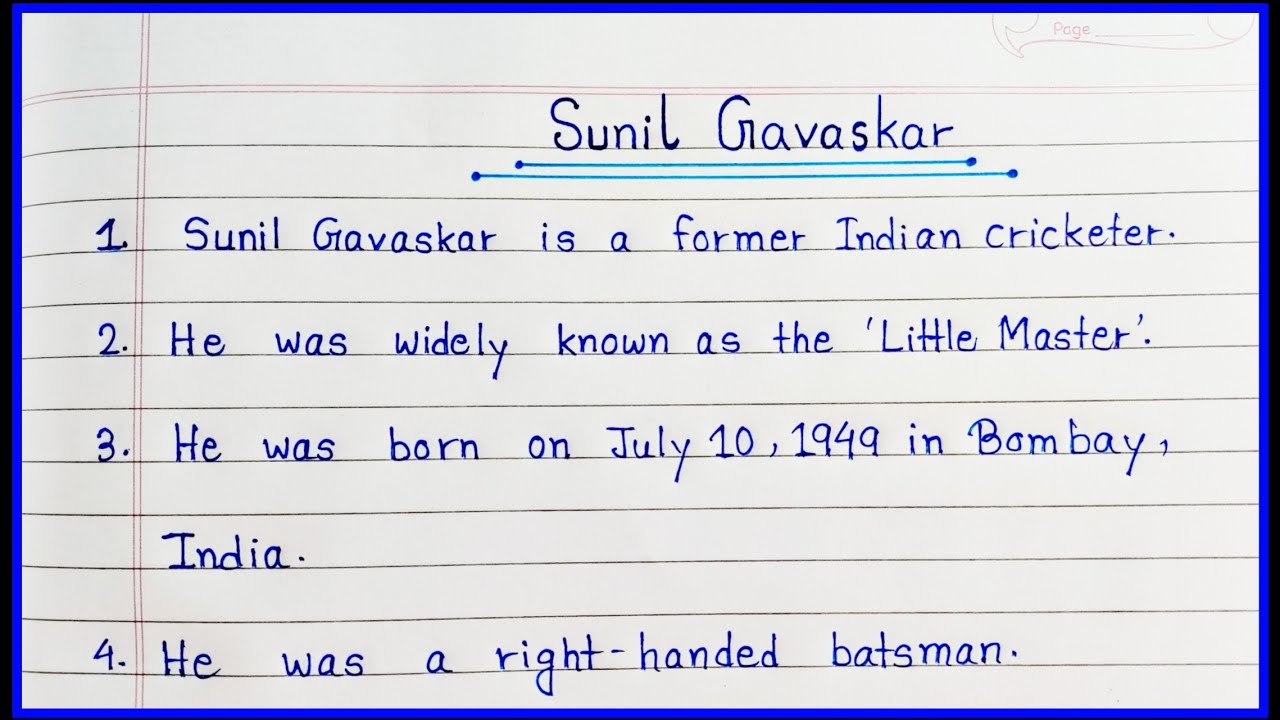 Page
Sunil Gavaskar
1. Sunil Gavaskar is a former Indian cricketer.
2. He was widely known as the 'Little Master'.
3. He was born on July 10, 1949 in Bombay,
India.
4. He was a right-handed batsman.